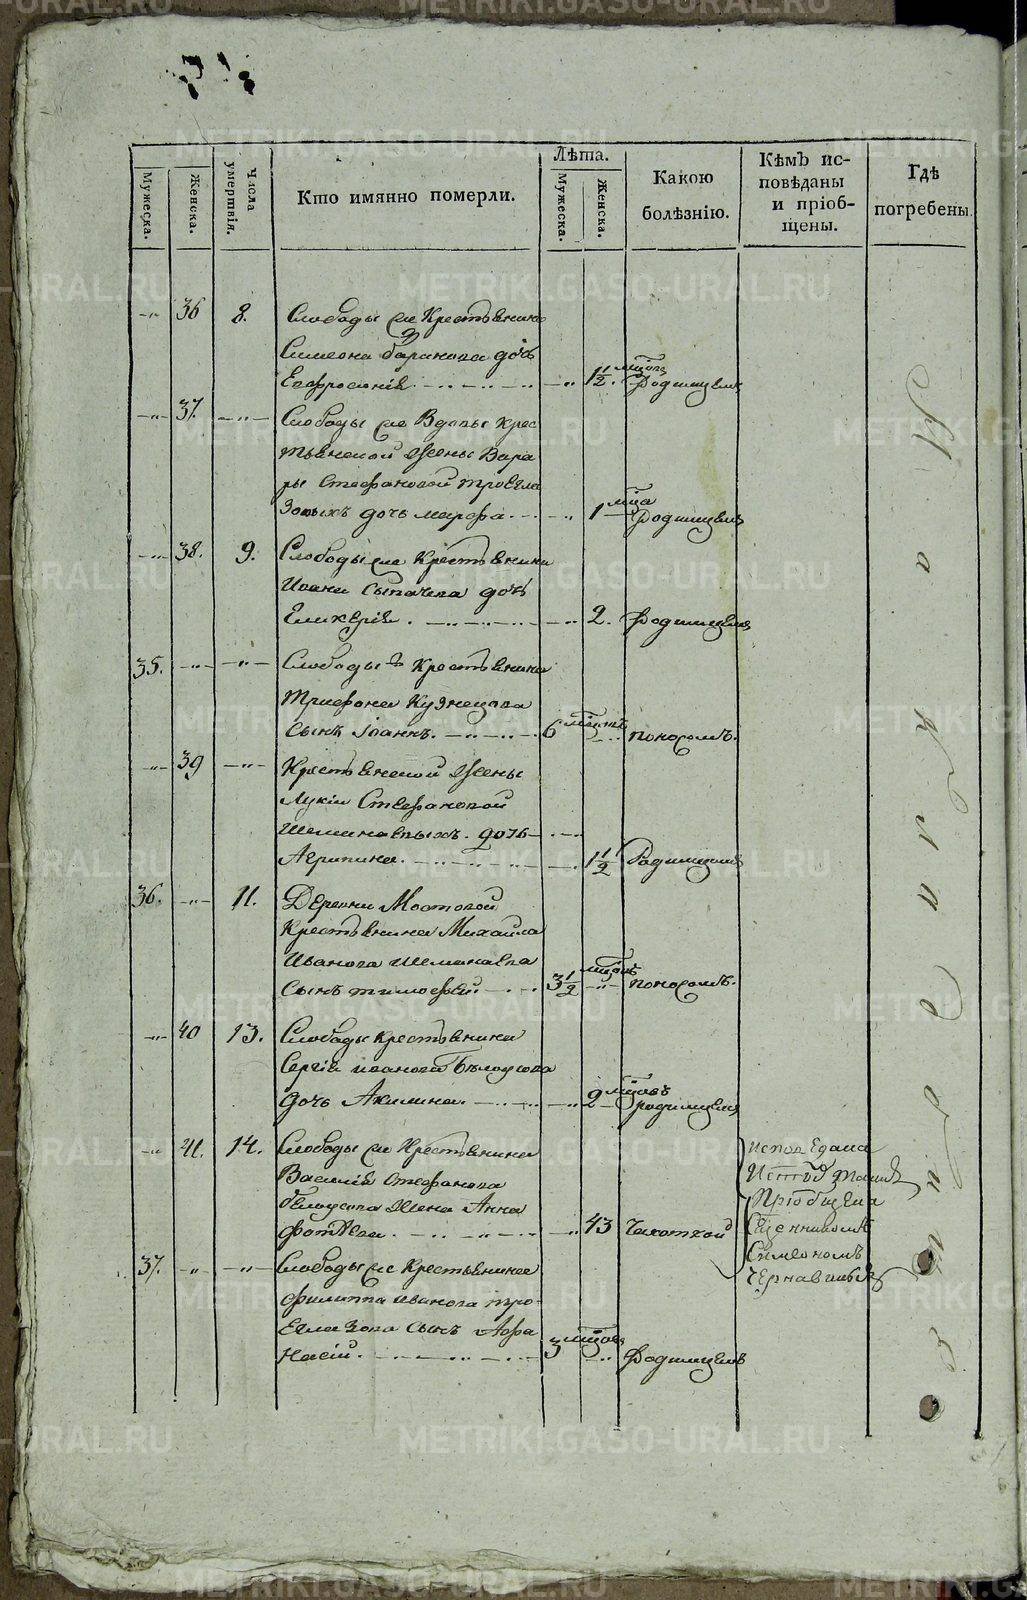 Мужеска.
Женска.
Числа умертвія.
Кто имянно померли.
Лѣта.
Мужеска.
Женска.
Какою
болѣзнію.
Кѣмъ ис-
повѣданы
и пріоб-
щены.
Гдѣ
погребены.
36 8. Слободы сея Крестьянина
Симеона Баранова дочь
Евфросинія 1 1/2 мцов Родимцемъ
37. Слободы сея Вдовы крес
тьянской Жены Вара
ры Стефановой
зовыхъ дочь марфа 1 мца Родимцемъ
38. 9. Слободы сея Крестьянина
Ивана Сыпачева дочь
Гликерія 2. Родимцемъ
35. Слободы Крестьянина
Трифона Кузнецова
Сынъ Іоаннъ 6 поносомъ.
39 Крестьянской Жены
Лукіи Стефановой
дочь
Агрипина 1 1/2 Родимцемъ
36. 11. Деревни Мостовой
Крестьянина Михаила
Иванова
Сынъ тимофей 3 1/2 мцовъ поносомъ.
40 13. Слободы крестьянина
Сергія иванова Бѣлоусова
дочь Акилина 2 мцовъ родимцемъ
41. 14. Слободы сея Крестьянина
Василія Стефанова
бѣлоусова Жена Анна
43 Чахоткой
исповѣдана
Пріобщена
Сщенникомъ
Симеономъ
Чернавинымъ
37. Слободы сея Крестьянина
филиппа иванова
сынъ Афа
насій 3 мцовъ Родимцемъ
На кладбищѣ
METRIKI.GASO-URAL.RU